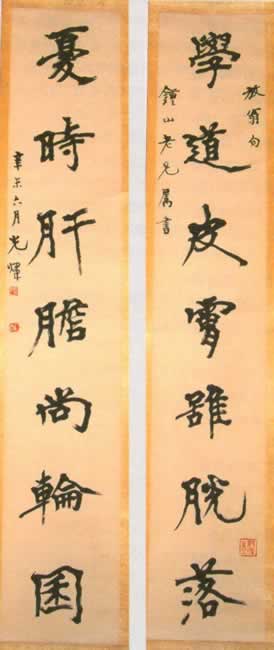 放翁句
學道皮膚雖脫落
鍾山老兄屬書
憂時肝膽尚輪囷
辛未六月光煒